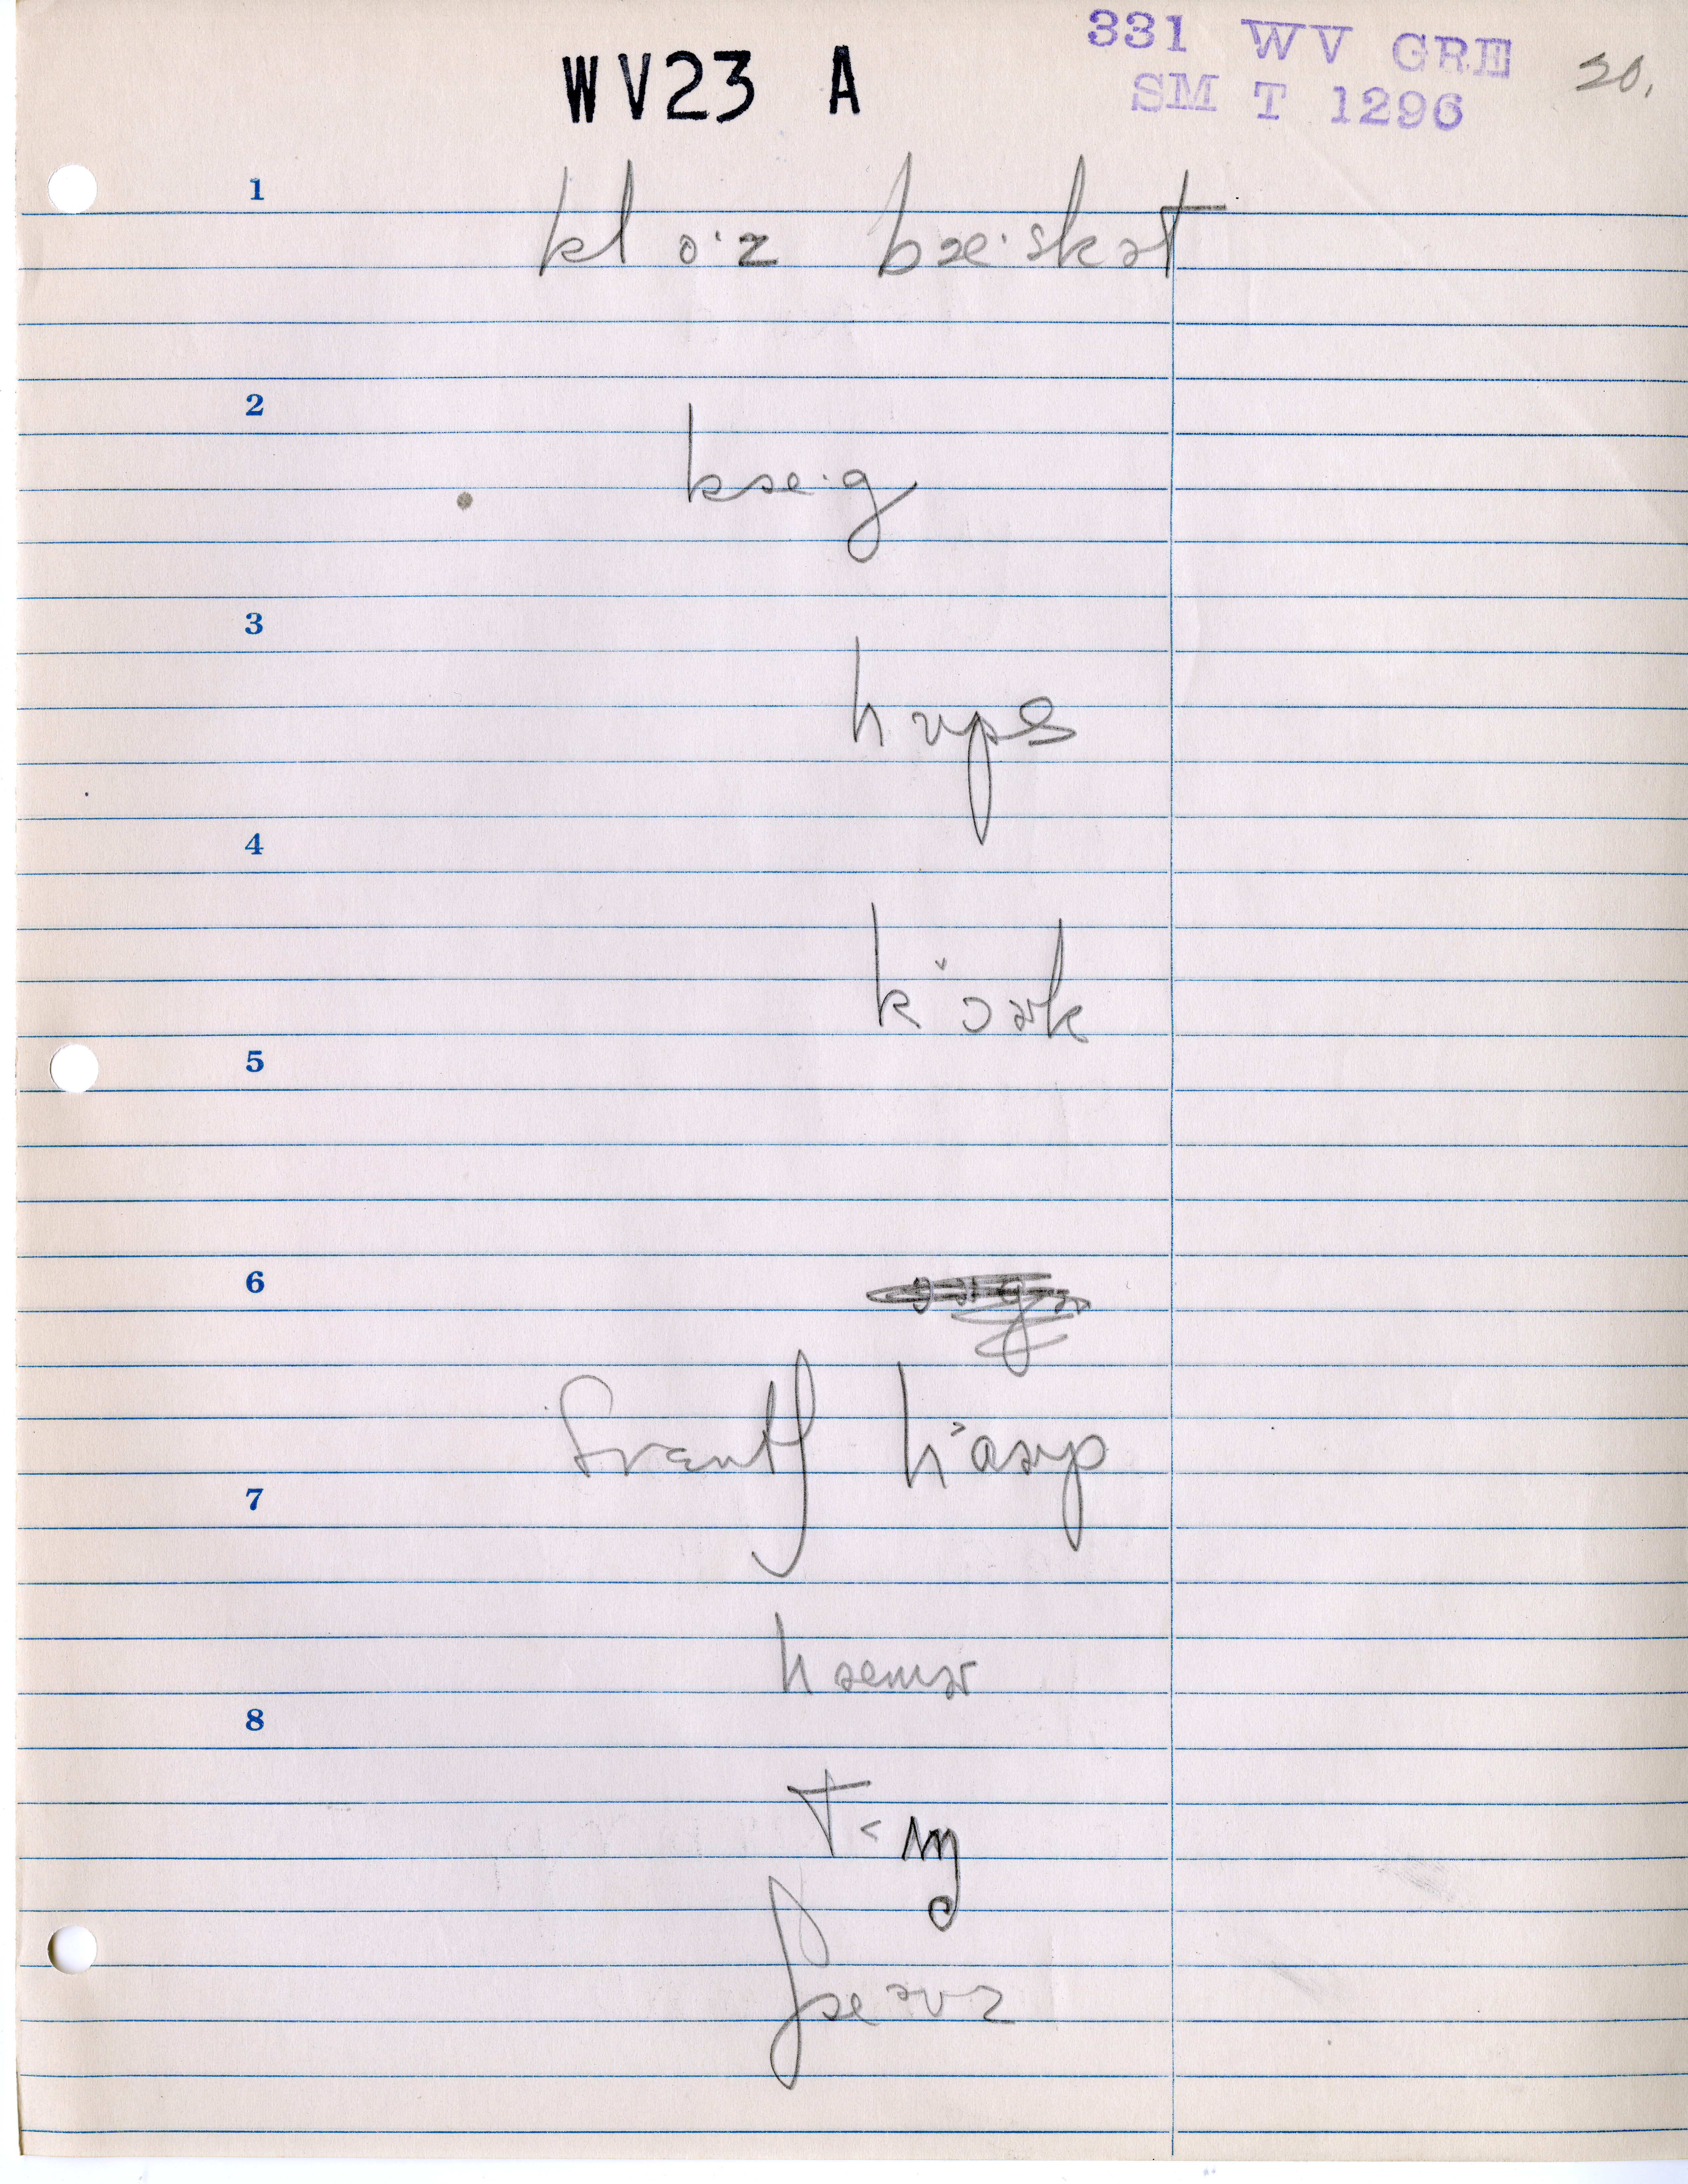 WV23 A
331 WV GRE
SM T 1296
20.
1
klo·z bæ·skət
2
kæ·g
3
hups
4
kˇɔɚk
5
6
7
frɛntʃ h˃ɑɚp
hæmɚ
8
T˂ŋ
ʃæᵊvz